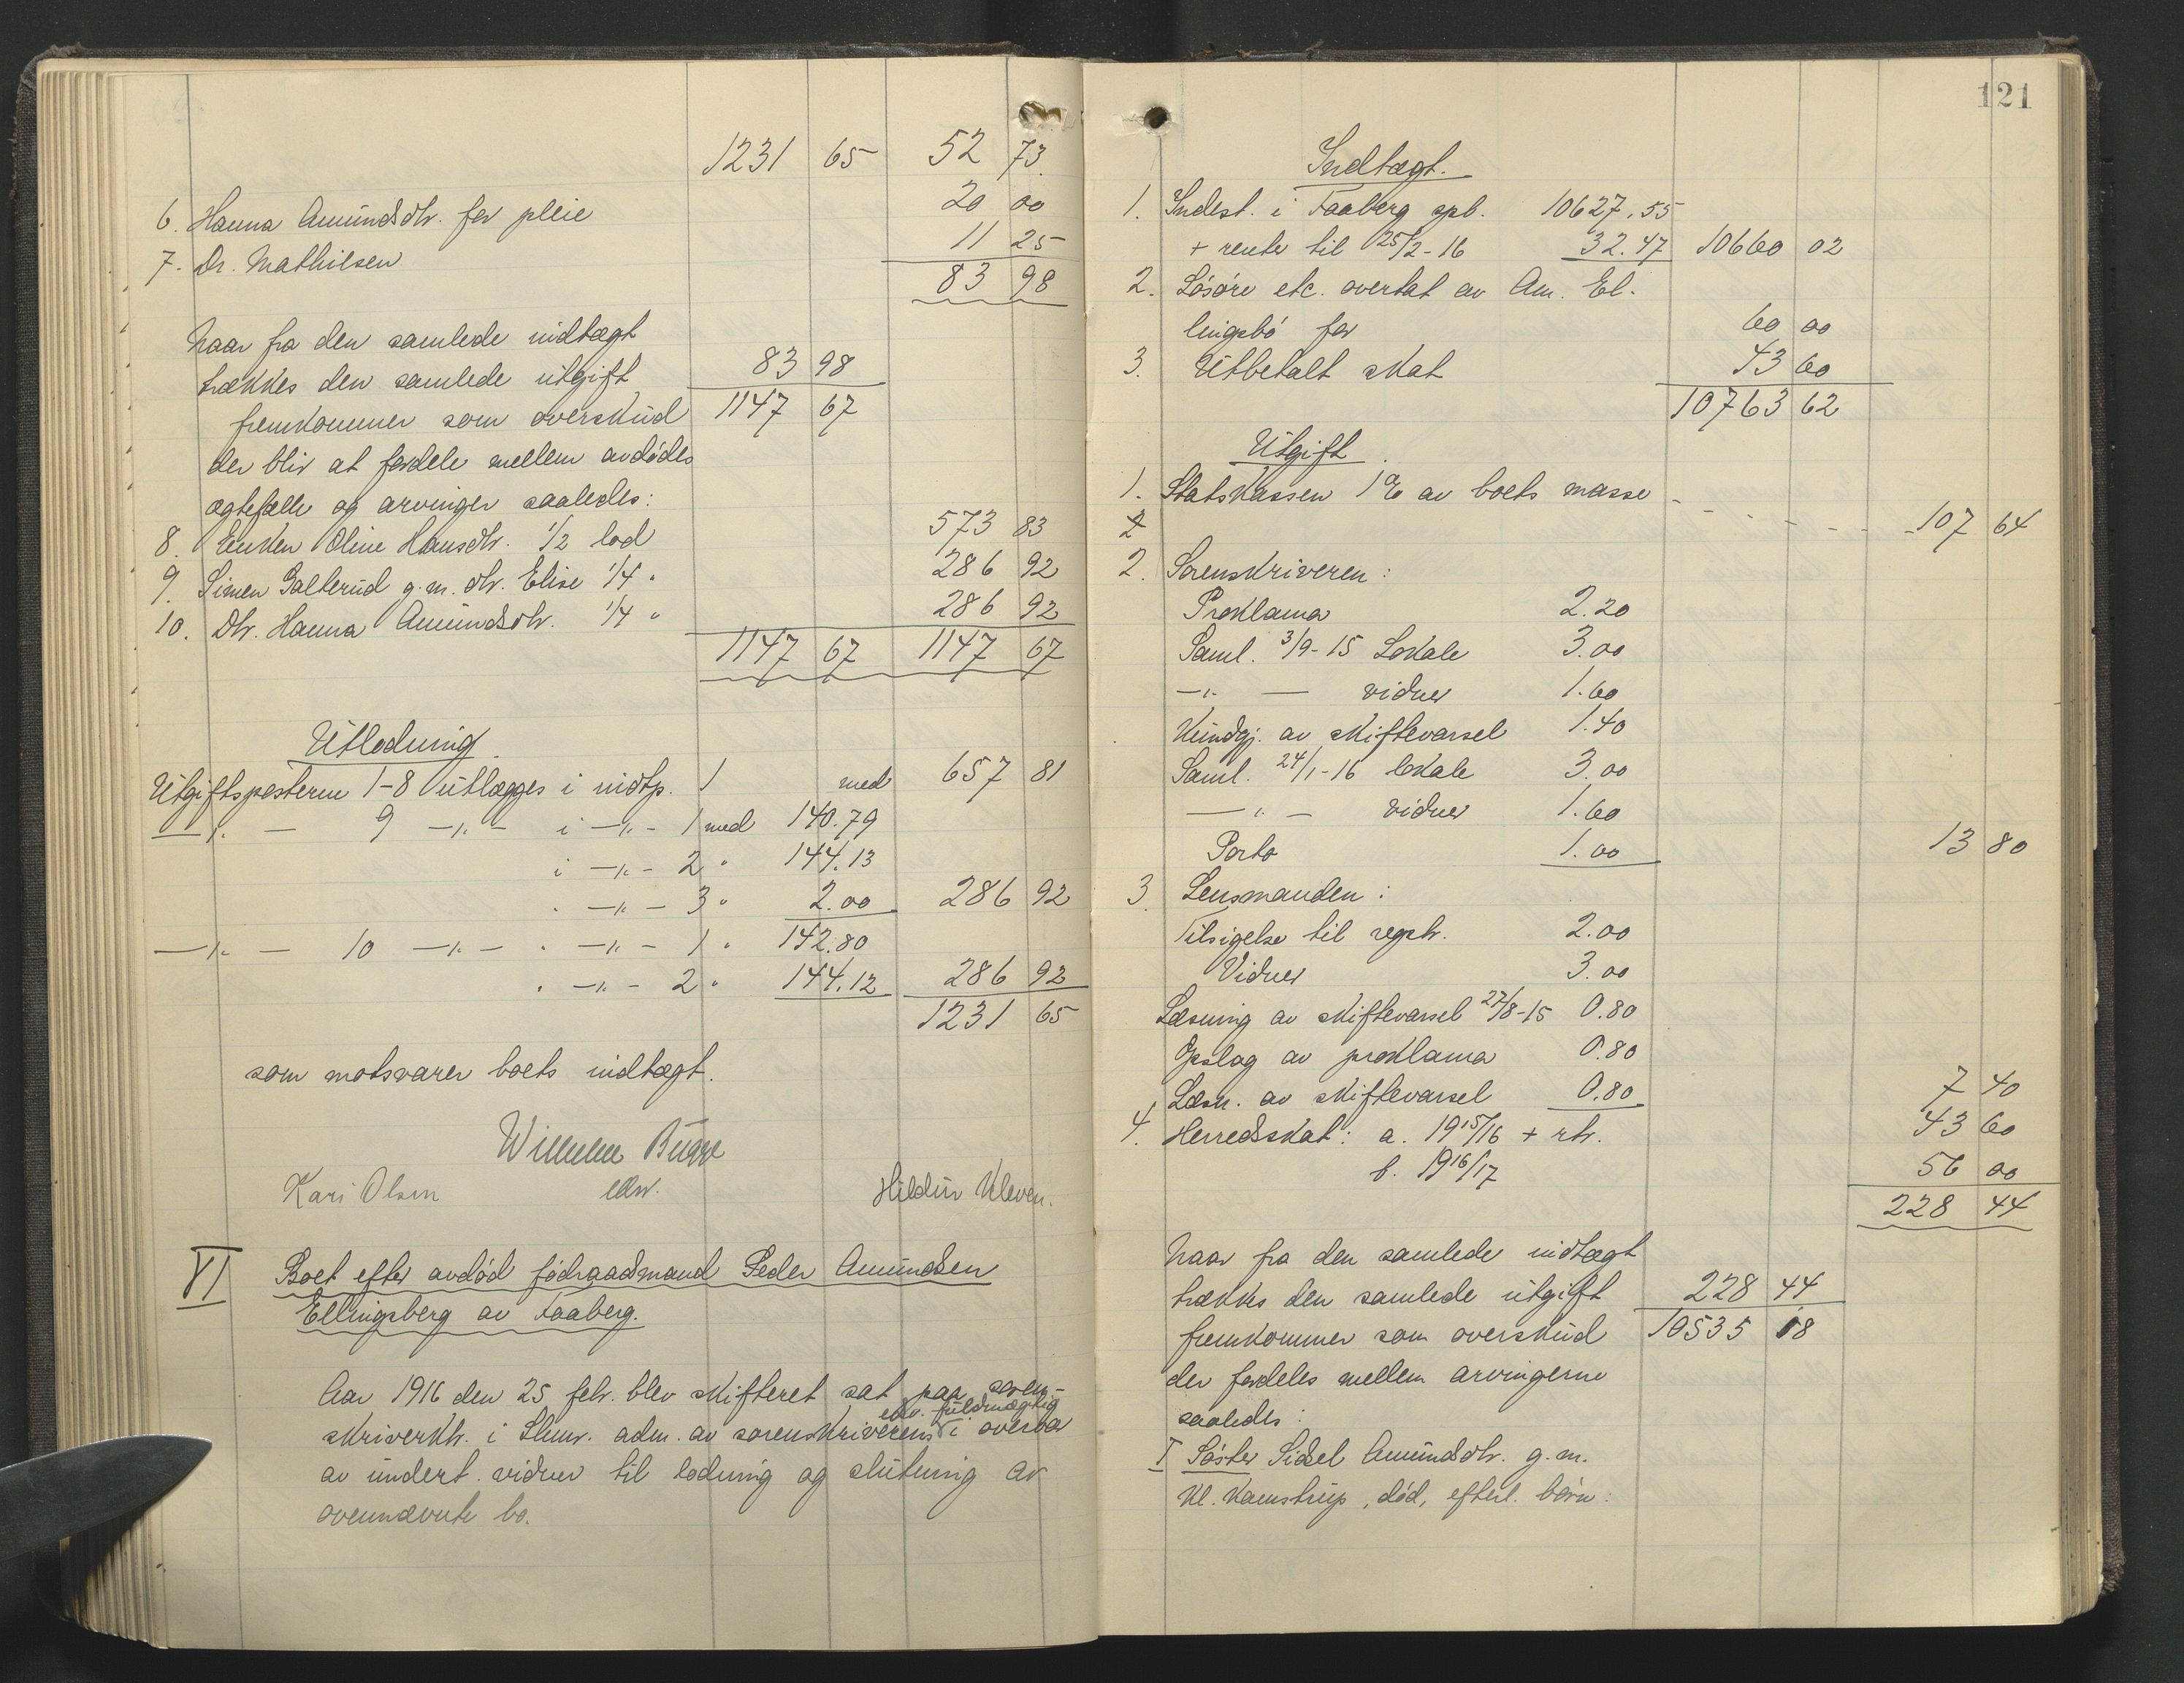 1231 65 52 73
6. Hanna Amundsdtr. for pleie 20 00
7. Dr. Mathiesen 11 25
83 98
Naar fra den samlede indtægt
trækkes den samlede utgift 83 98
fremkommer som overskud 1147 67
der blir at fordele mellem avdødes
ægtefælle og arvinger saaledes:
8. Enken Oline Hansdtr. 1/2 lod 573 83
9. Simen Galterud g.m. dtr. Elise 1/4 " 286 92
10. Dtr. Hanna Amundsdtr. 1/4 " 286 92
1147 67 1147 67
Utlodning
Utgiftsposterne 1-8 utlægges i indtp. 1 med 657 81
—"— 9 —"— i —"— 1 med 140.79
i —"— 2 " 144.13
" —"— 3 " 2.00 286 92
—"— 10 —"— " —"— 1 " 142.80
" —"— 2 " 144.12 286 92
1231 65
som motsvarer boets indtægt.
Wilhelm Bugge
edv.
Kari Olsen Hildur Kleven.
VI Boet efter avdød födraadsmand Peder Amundsen
Ellingsberg av Faaberg.
Aar 1916 den 25 febr. blev skifteret sat paa soren-
skriverktr. i Lhmr. adm. av sorenskriverens edv. fuldmægtig i overvær
av undert. vidner til lodning og slutning av
ovennævnte bo.
121
Indtægt.
1. Indest. i Faaberg spb. 10627.55
+ renter til 25/2-16 32.47 10660 02
2. Løsøre etc. overtat av Am. El-
lingsbø for 60 00
3. Utbetalt skat 43 60
10763 62
Utgift.
1. Statskassen 1% av boets masse - - - - - - 107 64
2
2. Sorenskriveren:
Proklama 2.20
Saml. 3/9-15 Lokale 3.00
—"— — vidner 1.60
Kundgj. av skiftevarsel 1.40
Saml. 24/1-16 lokale 3.00
—"— vidner 1.60
Porto 1.00 13 80
3. Lensmanden:
Tilsigelse til regstr. 2.00
Vidner 3.00
Læsning av skiftevarsel 27/8-15 0.80
Opslag av proklama 0.80
Læsn. av skiftevarsel 0.80 7 40
4. Herredsskat: a. 1915/16 + rtr. 43 60
b. 1916/17 56 00
228 44
Naar fra den samlede indtægt
trækkes den samlede utgift 228 44
fremkommer som overskud 10535 18
der fordeles mellem arvingerne
saaledes:
I Søster Sidsel Amundsdtr. g.m.
Kl. Kamstrup, død, efterl. børn: